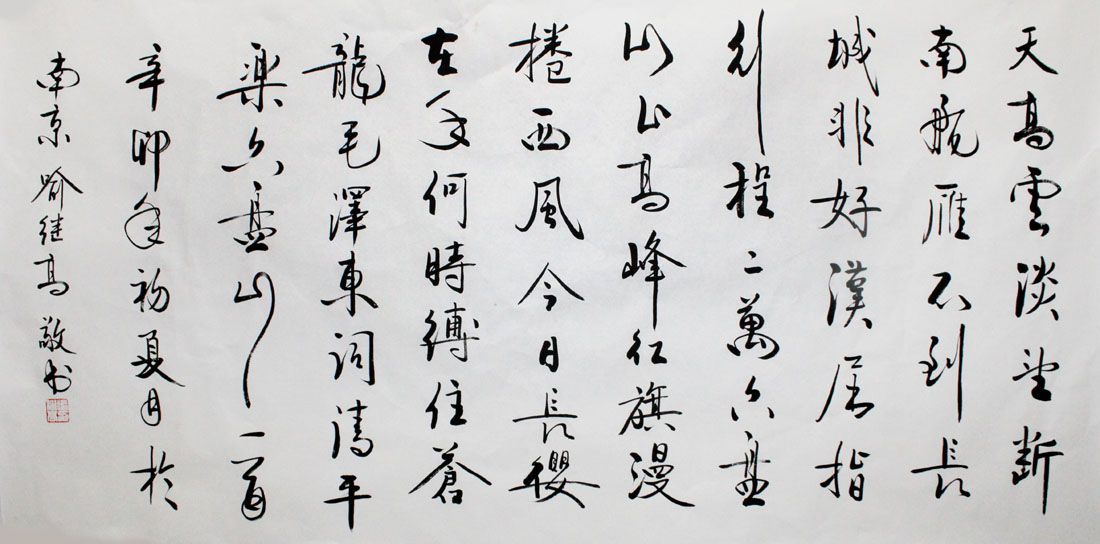 天高雲淡望斷
南飛雁不到長
城非好漢屈指
行程二萬六盤
山上高峰红旗漫
捲西風今日長纓
在手何時縛住蒼
龍毛澤東詞清平
楽六盤山一首
辛卯年初夏月於
南京喻继高敬书